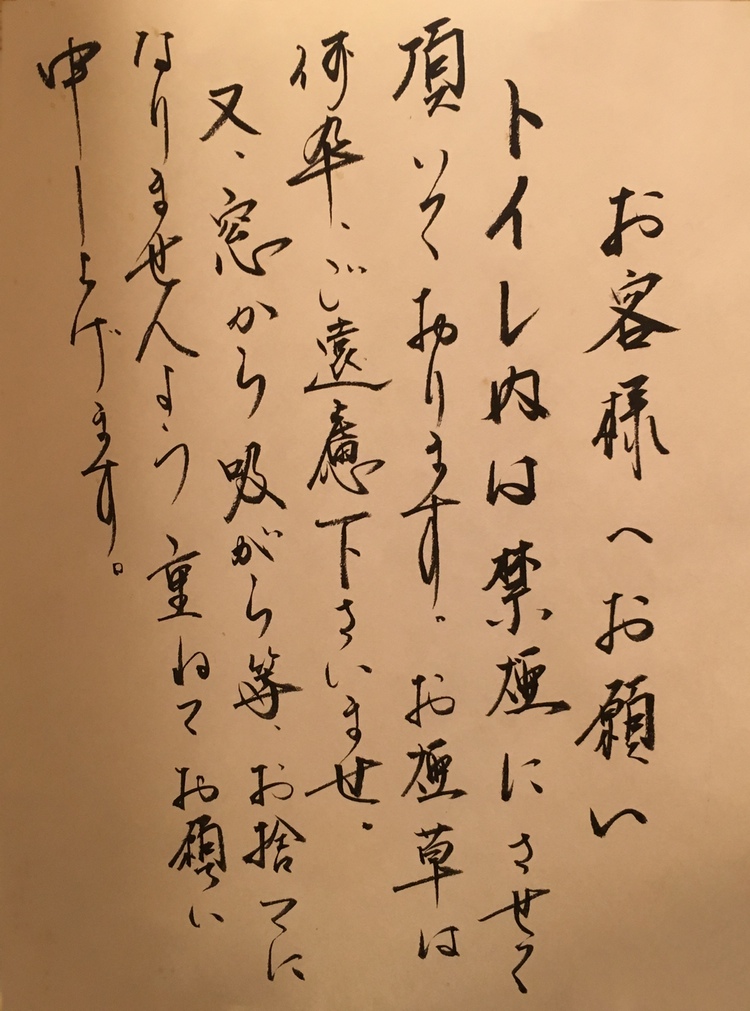 お客様へお願い
トイレ内は禁煙にさせて
頂いております。お煙草は
何卒、ご遠慮下さいませ。
又、窓から吸がら等、お捨てに
なりませんよう重ねてお願い
申し上げます。